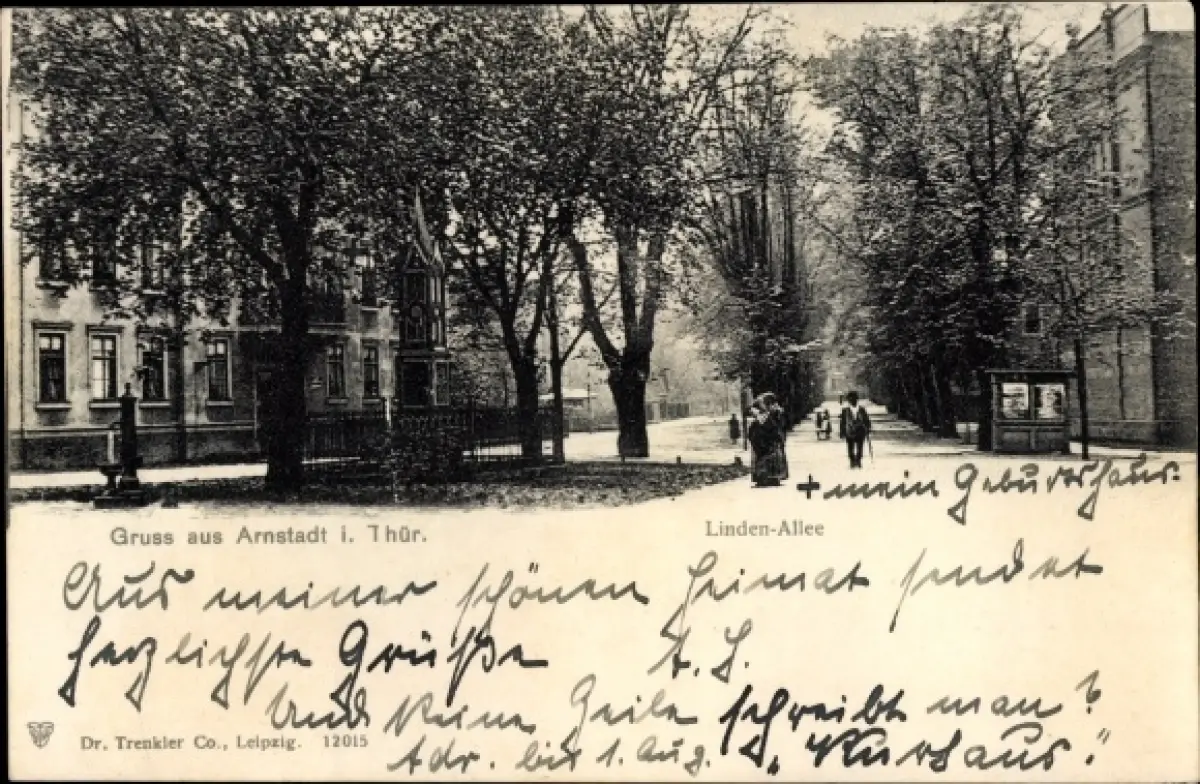 + mein Geburtshaus.
Gruss aus Arnstadt i. Thür.
Linden-Allee
Aus meiner schönen Heimat sendet
herzlichste Grüße A. H.
Und keine Zeile schreibt man?
Adr. bis 1. Aug. „Kurhaus".
Dr. Trenkler Co., Leipzig. 12015